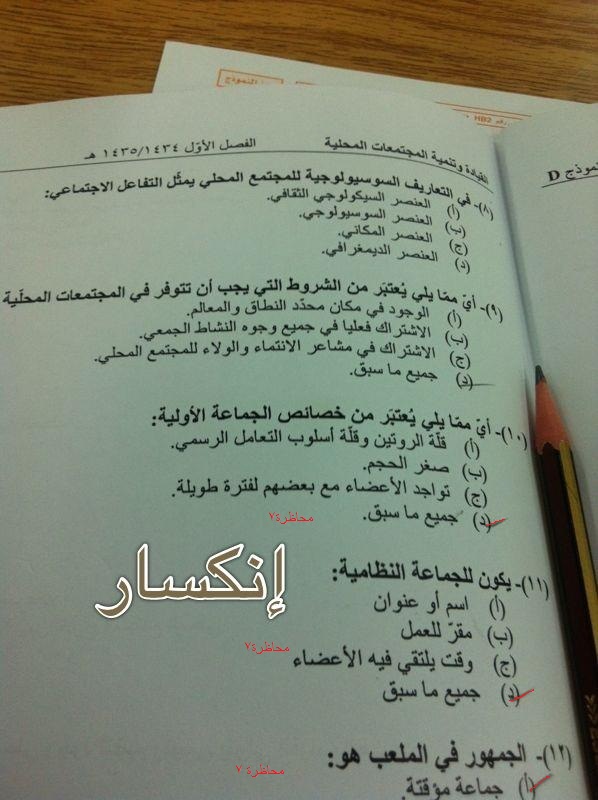 النموذج
HB2
نموذج D
القيادة وتنمية المجتمعات المحلية
الفصل الأوّل ١٤٣٥/١٤٣٤ هـ
(٨)- في التعاريف السوسيولوجية للمجتمع المحلي يمثّل التفاعل الاجتماعي:
(أ) العنصر السيكولوجي الثقافي.
(ب) العنصر السوسيولوجي.
(ج) العنصر المكاني.
(د) العنصر الديمغرافي.
(٩)- أيّ ممّا يلي يُعتبَر من الشروط التي يجب أن تتوفر في المجتمعات المحلّية
(أ) الوجود في مكان محدّد النطاق والمعالم.
(ب) الاشتراك فعليا في جميع وجوه النشاط الجمعي.
(ج) الاشتراك في مشاعر الانتماء والولاء للمجتمع المحلي.
(د) جميع ما سبق.
(١٠)- أيّ ممّا يلي يُعتبَر من خصائص الجماعة الأولية:
(أ) قلّة الروتين وقلّة أسلوب التعامل الرسمي.
(ب) صغر الحجم.
(ج) تواجد الأعضاء مع بعضهم لفترة طويلة.
(د) جميع ما سبق.
محاظرة٧
إنكسار
(١١)- يكون للجماعة النظامية:
(أ) اسم أو عنوان
(ب) مقرّ للعمل
محاظرة٧
(ج) وقت يلتقي فيه الأعضاء
(د) جميع ما سبق
(١٢)- الجمهور في الملعب هو:
محاظرة ٧
(أ) جماعة مؤقتة.